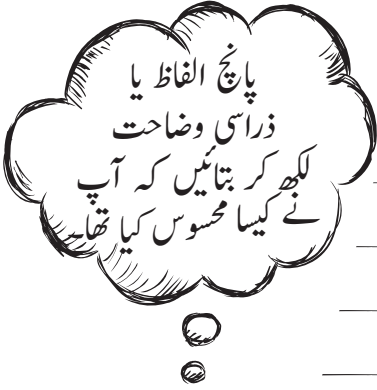 پانچ الفاظ یا
ذراسی وضاحت
لکھ کر بتائیں کہ آپ
نے کیسا محسوس کیا تھا۔